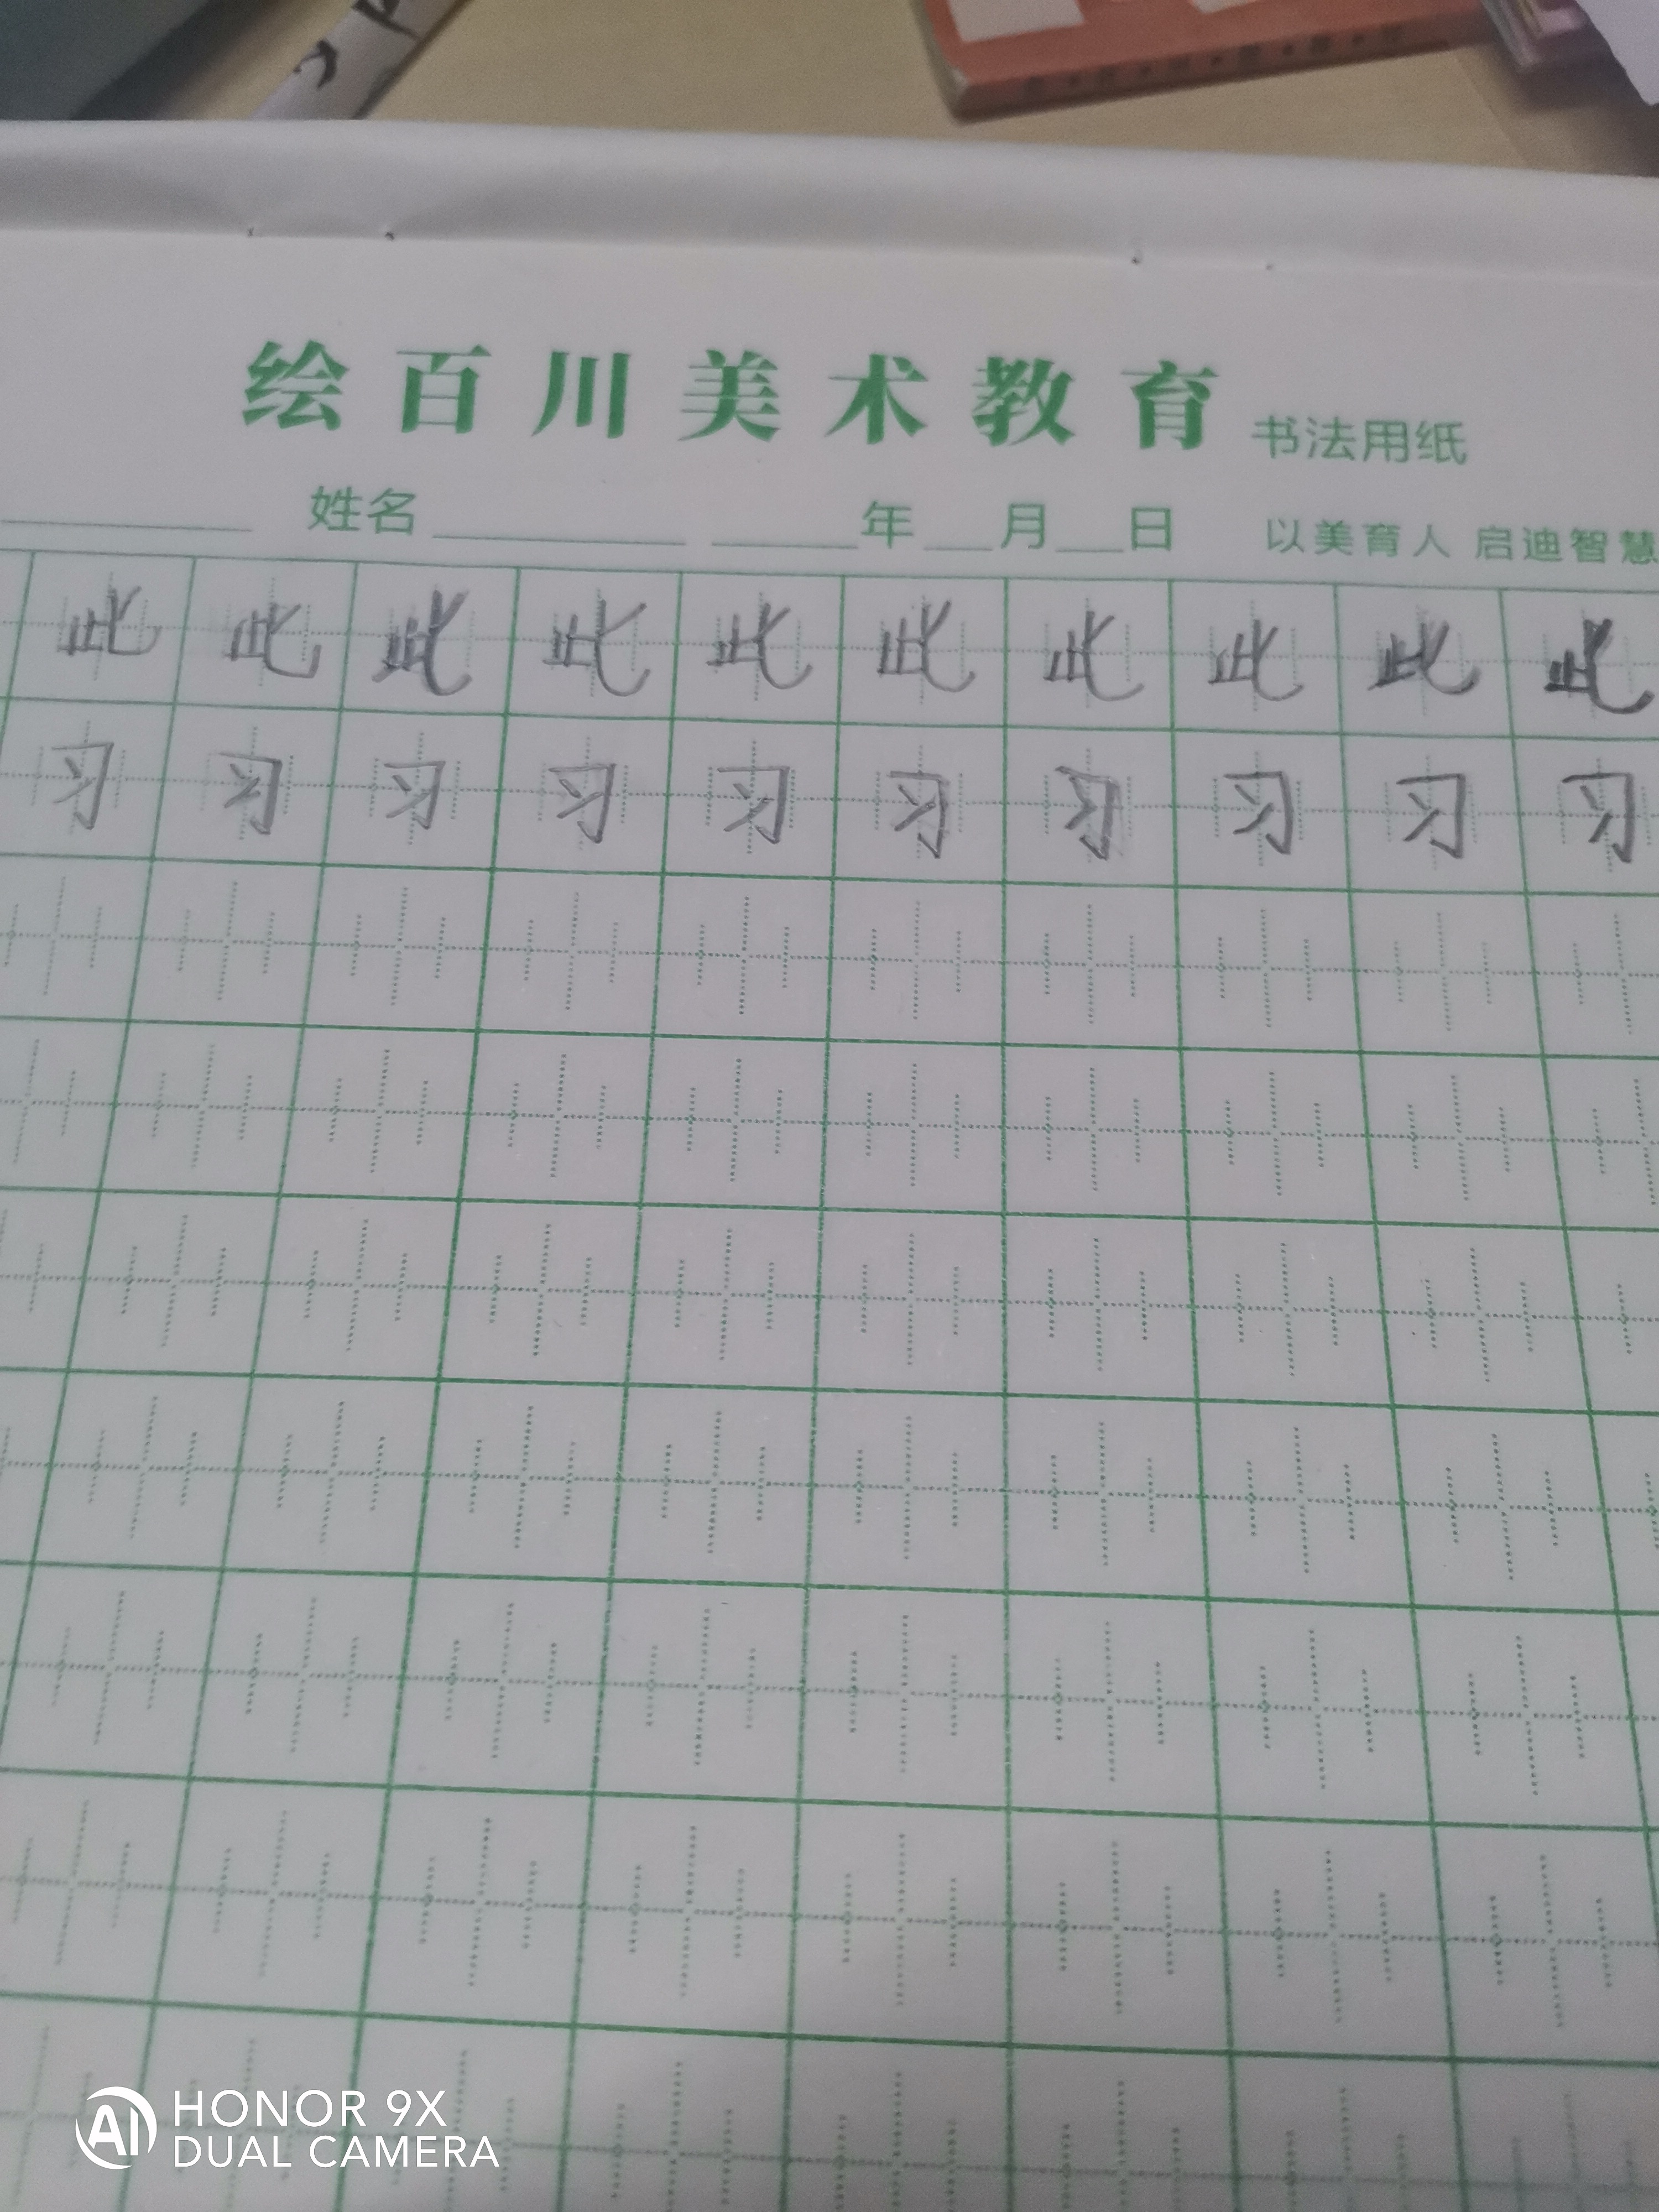 绘百川美术教育 书法用纸
姓名 年 月 日 以美育人 启迪智慧
此 此 此 此 此 此 此 此 此 此
习 习 习 习 习 习 习 习 习 习
AI HONOR 9X
DUAL CAMERA